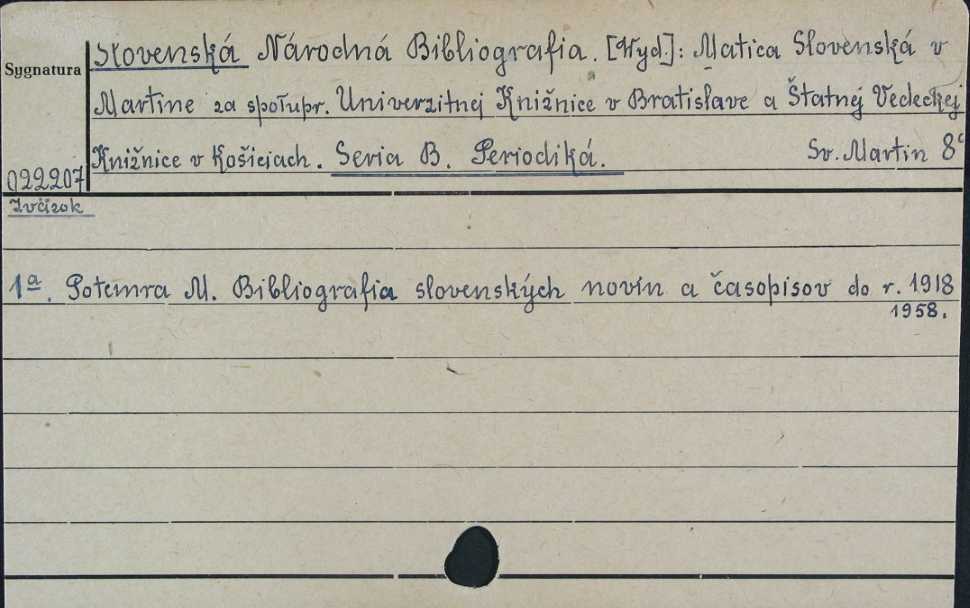 Slovenská Národná Bibliografia. [Wyd.]: Matica Slovenská v
Sygnatura
Martine za społupr. Univerzitnej Knižnice v Bratislave a Štatnej Vedeckej
Knižnice v Košiciach. Seria B. Periodiká. Sv. Martin 8°
022207
Zväzok
1a. Potemra M. Bibliografia slovenských novín a časopisov do r. 1918
1958.